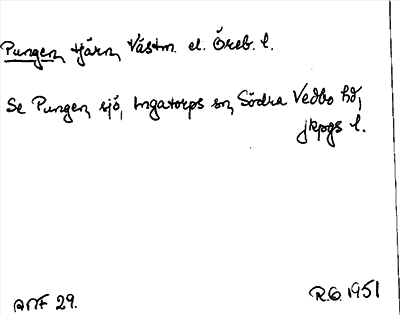 Pungen, tjärn, Västm. el. Örebr. l.
Se Pungen, sjö, Ingatorps sn, Södra Vedbo hd,
jkpgs l.
ANF 29.
R.G. 1951